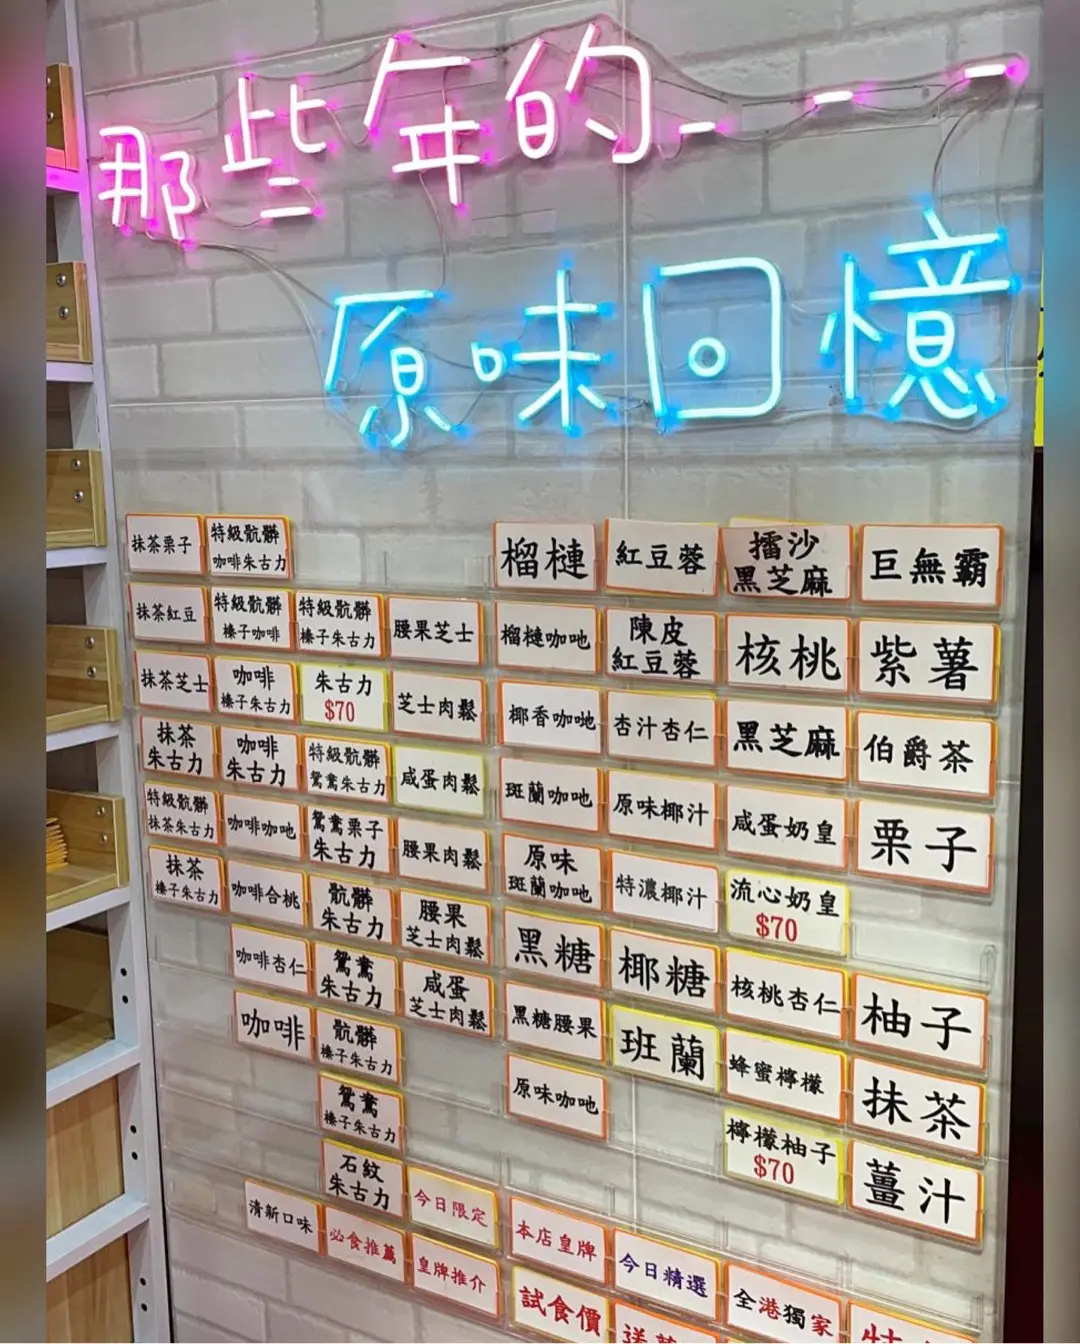 那些年的___
原味回憶
抹茶栗子
特級骯髒
咖啡朱古力
抹茶紅豆
特級骯髒
榛子咖啡
特級骯髒
榛子朱古力
腰果芝士
抹茶芝士
咖啡
榛子朱古力
朱古力
$70
芝士肉鬆
抹茶
朱古力
咖啡
朱古力
特級骯髒
鴛鴦朱古力
咸蛋肉鬆
特級骯髒
抹茶朱古力
咖啡咖吔
鴛鴦栗子
朱古力
腰果肉鬆
抹茶
榛子朱古力
咖啡合桃
骯髒
朱古力
腰果
芝士肉鬆
咖啡杏仁
鴛鴦
朱古力
咸蛋
芝士肉鬆
咖啡
骯髒
榛子朱古力
鴛鴦
榛子朱古力
石紋
朱古力
榴槤
紅豆蓉
擂沙
黑芝麻
巨無霸
榴槤咖吔
陳皮
紅豆蓉
核桃
紫薯
椰香咖吔
杏汁杏仁
黑芝麻
伯爵茶
斑蘭咖吔
原味椰汁
咸蛋奶皇
栗子
原味
斑蘭咖吔
特濃椰汁
流心奶皇
$70
黑糖
椰糖
核桃杏仁
柚子
黑糖腰果
班蘭
蜂蜜檸檬
抹茶
原味咖吔
檸檬柚子
$70
薑汁
清新口味
必食推薦
今日限定
皇牌推介
本店皇牌
今日精選
全港獨家
試食價